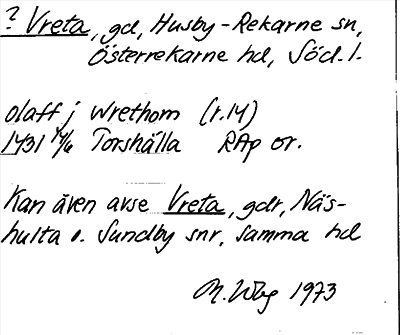 ? Vreta, gd, Husby-Rekarne sn,
Österrekarne hd, Södl.
olaff j wrethom (r.14)
1431 14/6 Torshälla RAp or.
Kan även avse Vreta, gdr, Näs-
hulta o. Sundby snr, samma hd
M. Wbg 1973